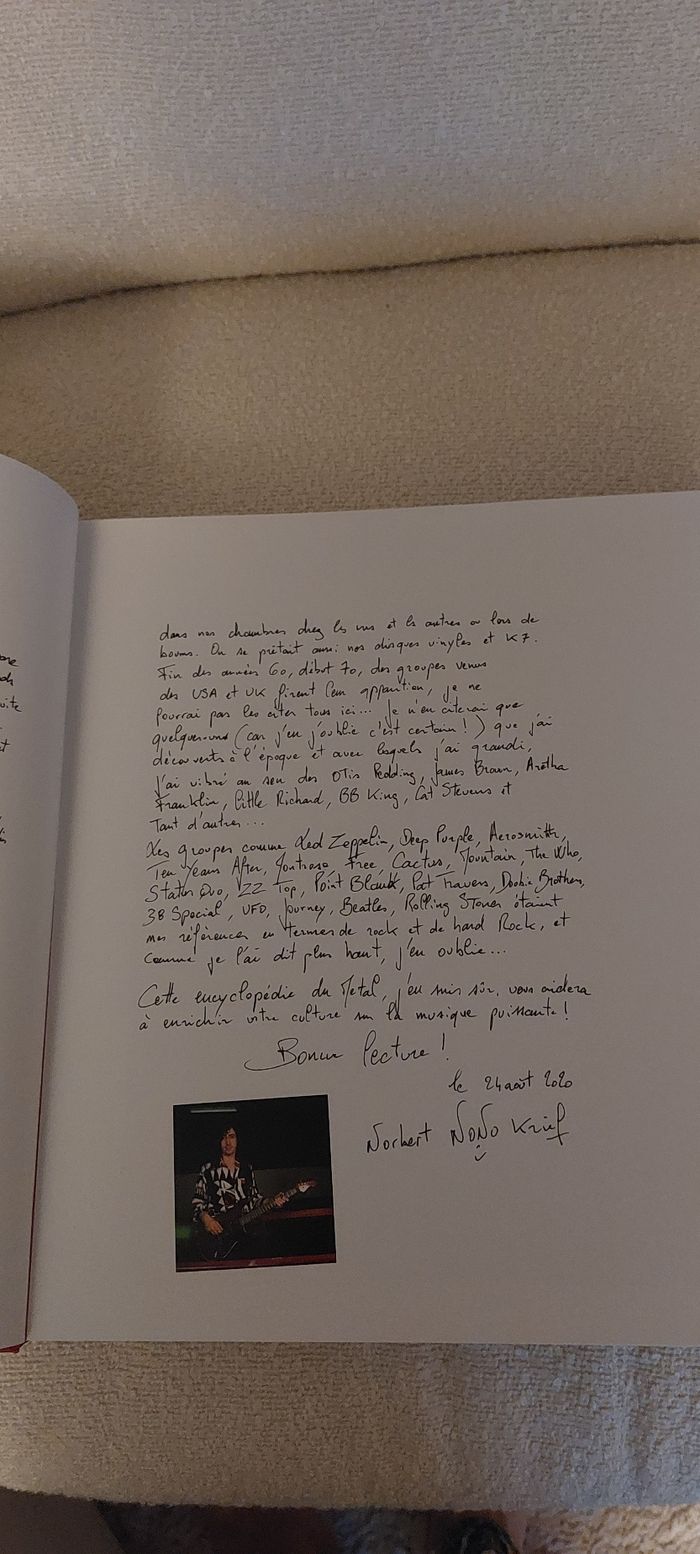 one
ch
uite
et
dans nos chambres chez les uns et les autres ou lors de
boums. On se prêtait aussi nos disques vinyles et K7.
Fin des années 60, début 70, des groupes venus
des USA et UK firent leur apparition, je ne
pourrai pas les citer tous ici... Je n'en citerai que
quelques-uns (car j'en j'oublie c'est certain !) que j'ai
découverts à l'époque et avec lesquels j'ai grandi,
J'ai vibré au son des Otis Redding, James Brown, Aretha
Franklin, Little Richard, BB King, Cat Stevens et
Tant d'autres...
Les groupes comme Led Zeppelin, Deep Purple, Aerosmith,
Ten Years After, Montrose, Free, Cactus, Mountain, The Who,
Status Quo, ZZ Top, Point Blank, Pat Travers, Doobie Brothers,
38 Special, UFO, Journey, Beatles, Rolling Stones étaient
mes références en termes de rock et de hard Rock, et
comme je l'ai dit plus haut, j'en oublie...
Cette encyclopédie du Metal, j'en suis sûr, vous aidera
à enrichir votre culture sur la musique puissante !
Bonne lecture !
le 24 août 2020
Norbert NONO Krief